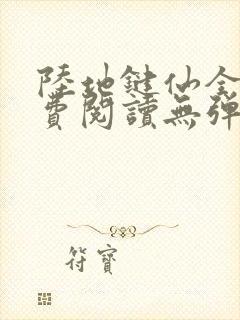 陸地鍵仙全
費閱讀無彈
符寶